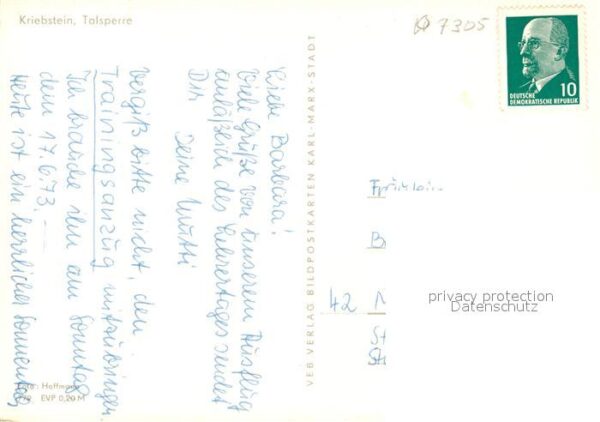 Kriebstein, Talsperre
7305
DEUTSCHE
DEMOKRATISCHE REPUBLIK
10
Liebe Barbara!
Viele Grüße von unserem Ausflug
anläßlich des Lehrertages sendet
Dir
Deine Mutti
Vergiß bitte nicht, den
Trainingsanzug mitzubringen
Ich brauche ihn am Sonntag
dem 17.6.73. —
Heute ist ein herrlicher Sonnentag
VEB VERLAG BILDPOSTKARTEN KARL-MARX-STADT
Fräulein
B
42
St
privacy protection
Datenschutz
Foto: Hoffmann
EVP 0,20 M